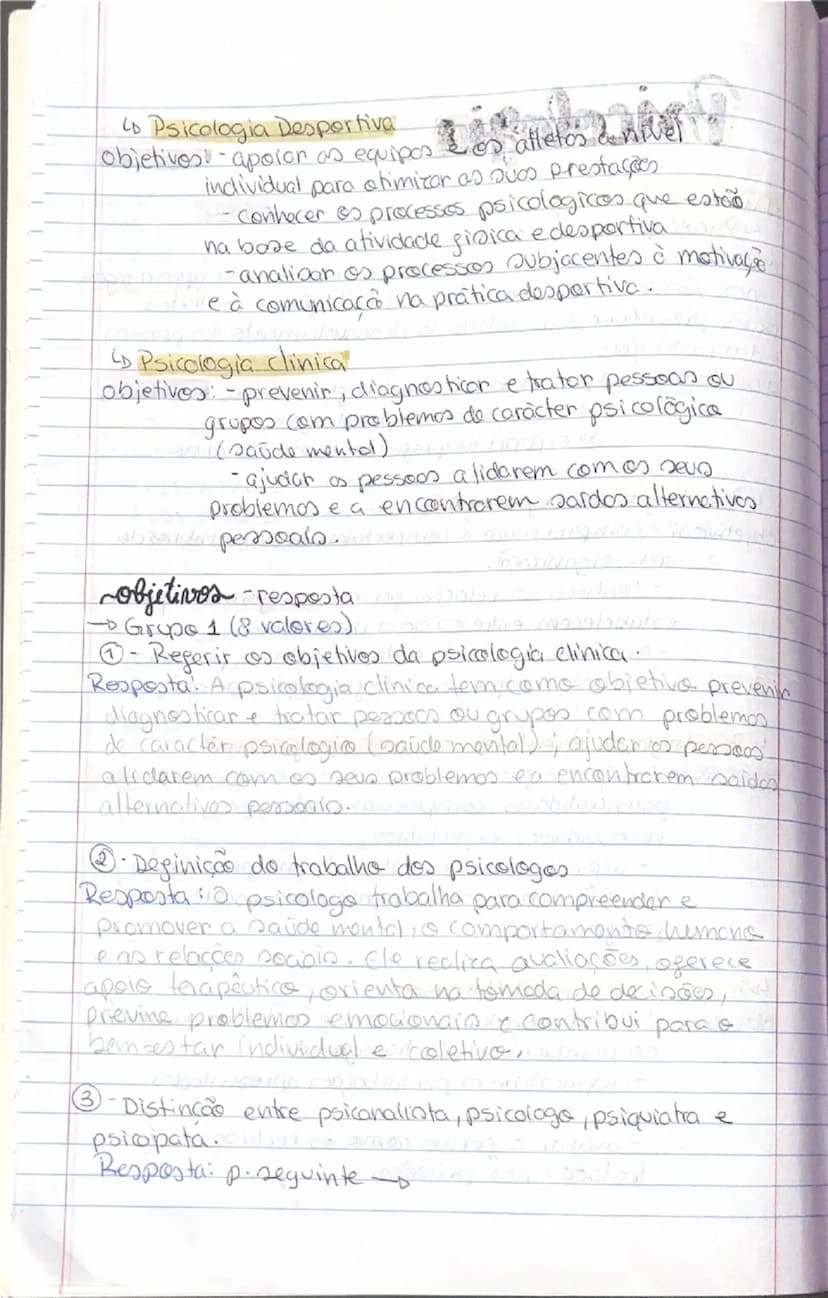 ↳ Psicologia Desportiva
objetivos: - apoiar as equipas e os atletas a nível
individual para otimizar as suas prestações
- conhecer os processos psicologicos que estão
na base da atividade física e desportiva
- analisar os processos subjacentes à motivação
e à comunicaçã na prática desportiva.
↳ Psicologia clinica
objetivos: - prevenir, diagnosticar e tratar pessoas ou
grupos com problemas de carácter psicológico
(saúde mental)
- ajudar as pessoas a lidarem com os seus
problemas e a encontrarem saídas alternativas
pessoais.
~objetivos - resposta
→ Grupo 1 (8 valores)
① - Referir os objetivos da psicologia clinica.
Resposta: A psicologia clinica tem como objetivo prevenir
diagnosticar e tratar pessoas ou grupos com problemas
de caractér psicologico (saúde mental); ajudar as pessoas
a lidarem com os seus problemas e a encontrarem saídas
alternativas pessoais.
② - Definição do trabalho dos psicologos
Resposta: O psicologo trabalha para compreender e
promover a saúde mental, o comportamento humano
e as relações sociais. Ele realiza avaliações, oferece
apoio terapêutico, orienta na tomada de decisões,
previne problemas emocionais e contribui para o
bem-estar individual e coletivo.
③ - Distinção entre psicanalista, psicologo, psiquiatra e
psicopata.
Resposta: p. seguinte →